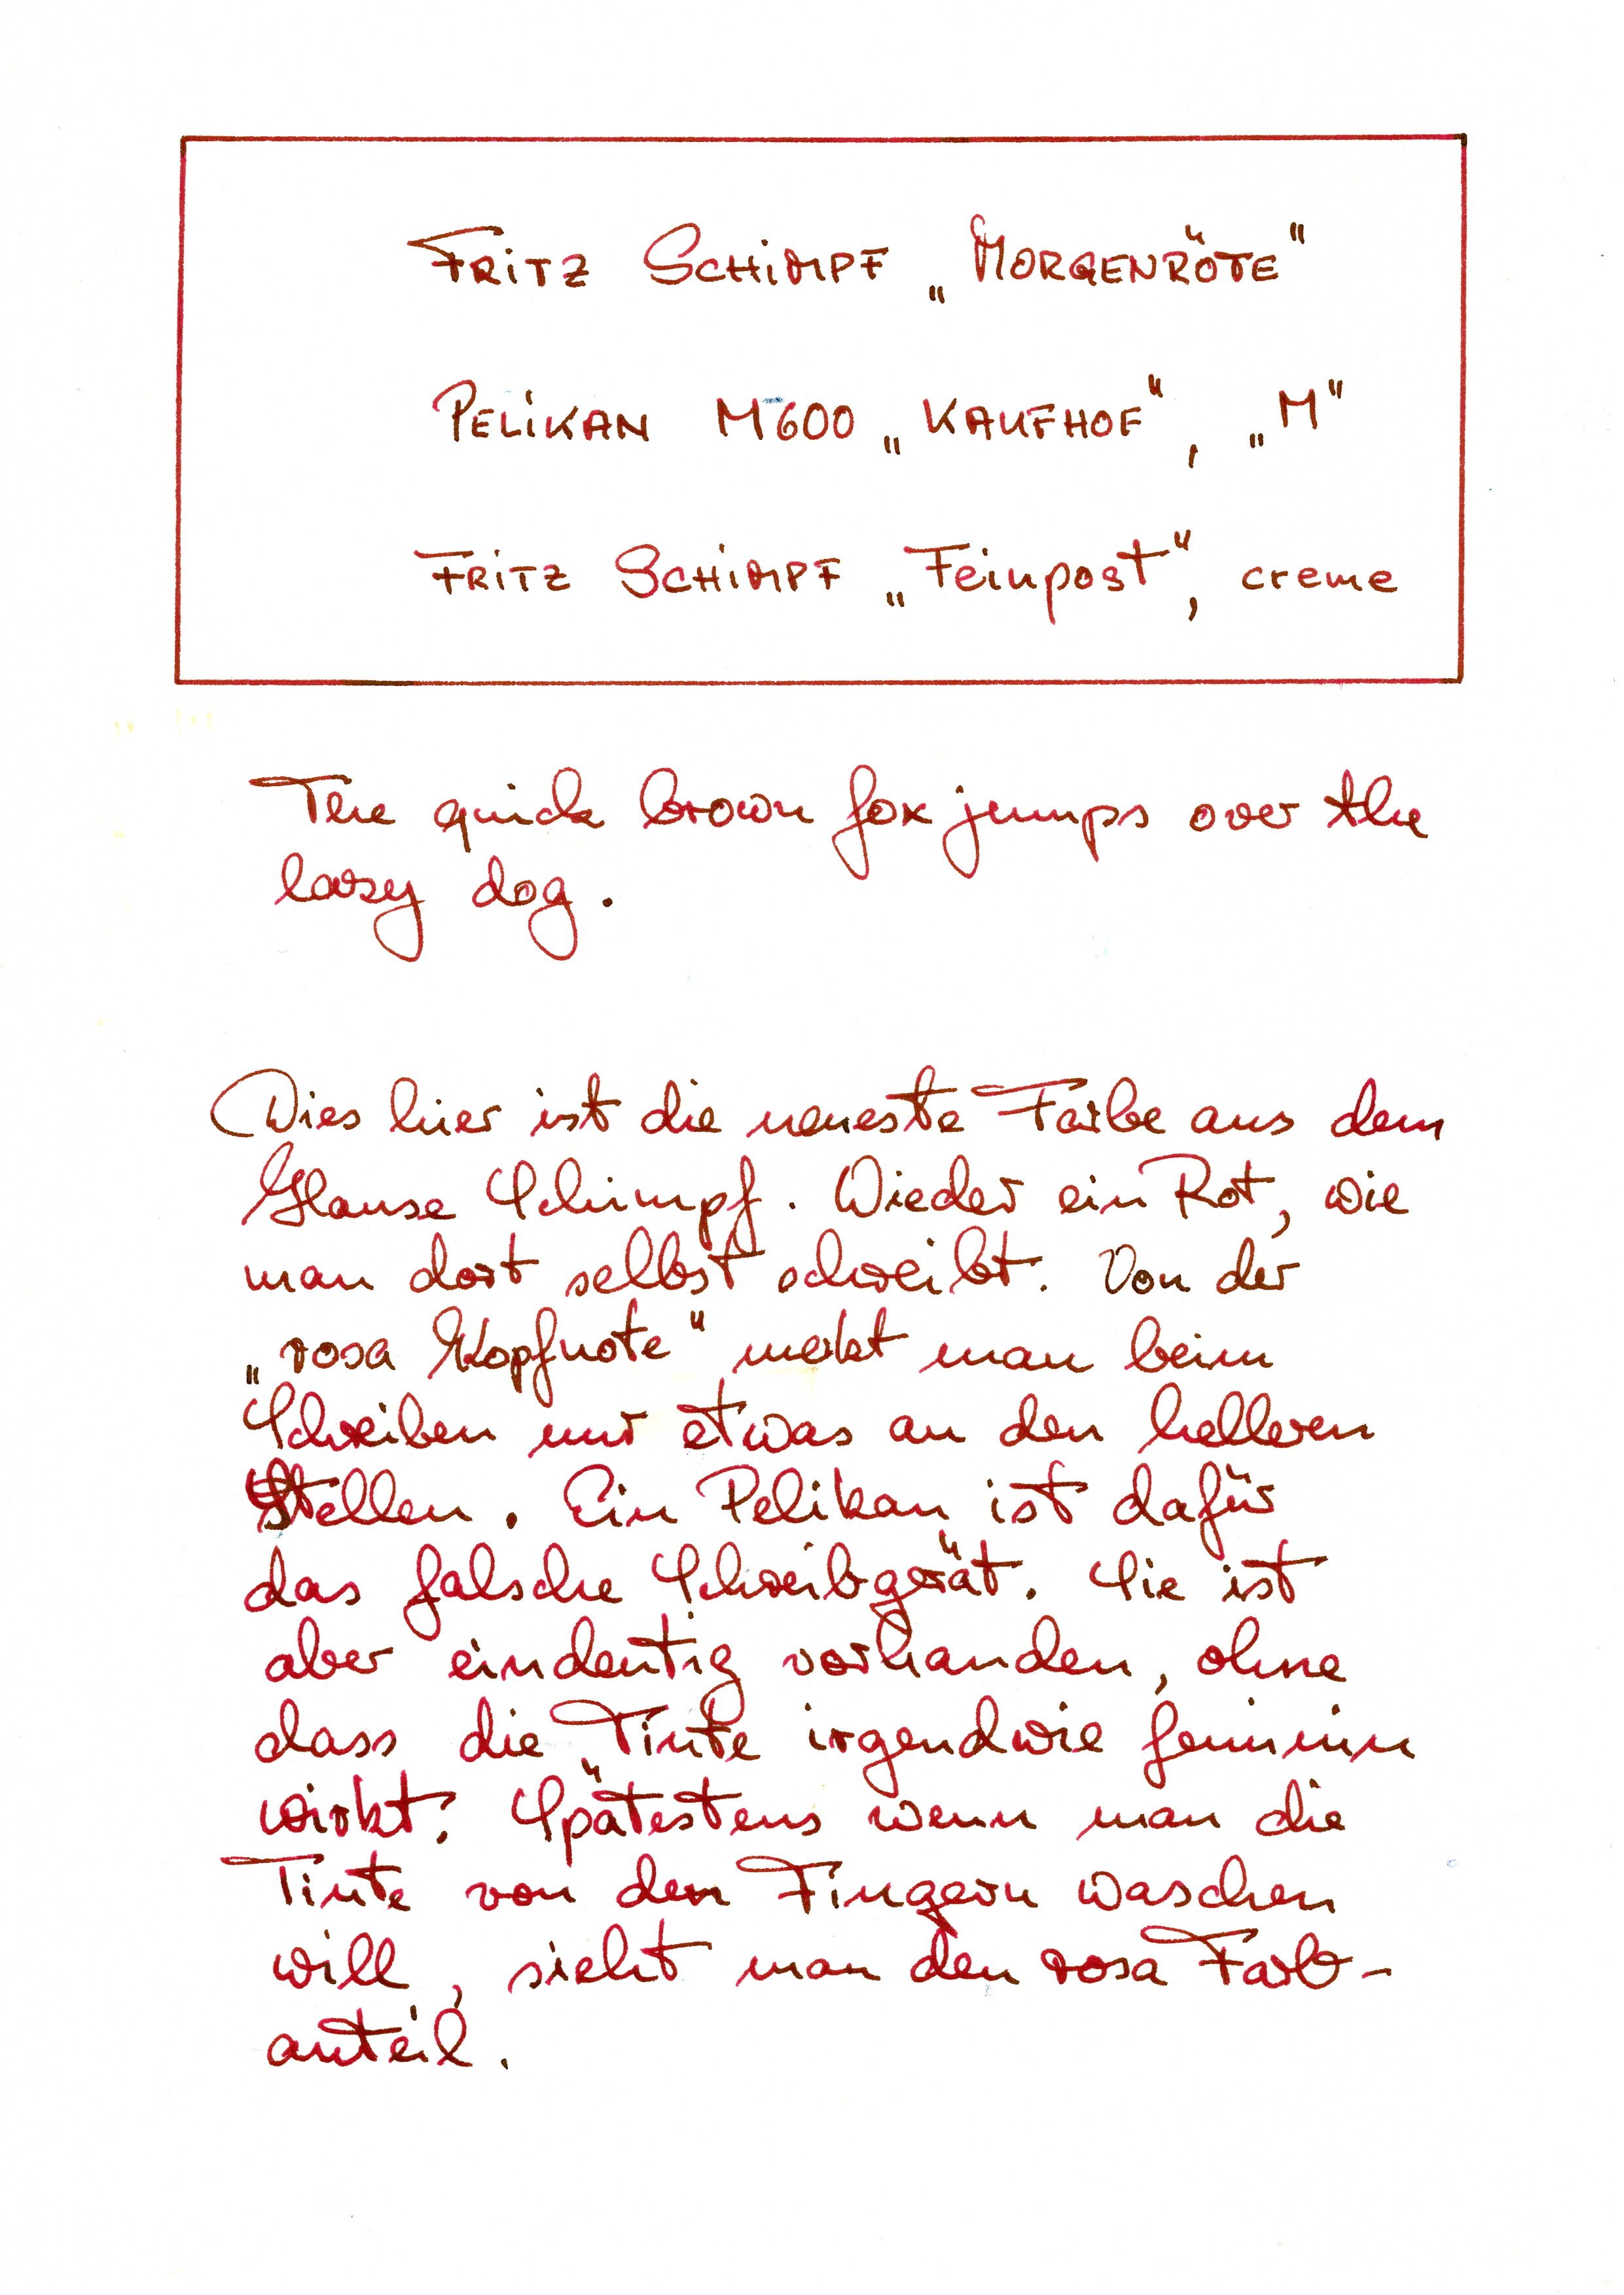 Fritz Schimpf „Morgenröte"
Pelikan M600 „Kaufhof", „M"
Fritz Schimpf „Feinpost", creme
The quick brown fox jumps over the
lazy dog.
Dies hier ist die neueste Farbe aus dem
Hause Schimpf. Wieder ein Rot, wie
man dort selbst schreibt. Von der
„rosa Kopfnote" merkt man beim
Schreiben nur etwas an den helleren
Stellen. Ein Pelikan ist dafür
das falsche Schreibgerät. Sie ist
aber eindeutig vorhanden, ohne
dass die Tinte irgendwie feminin
wirkt. Spätestens wenn man die
Tinte von den Fingern waschen
will, sieht man den rosa Farb-
anteil.